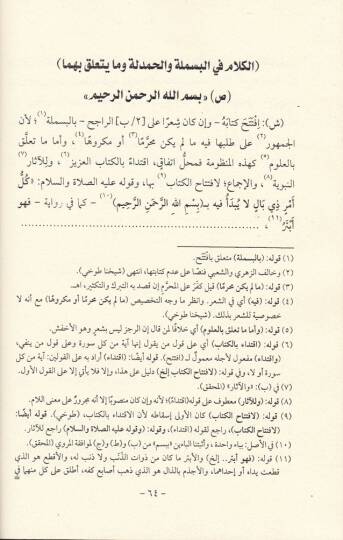 (الكلام في البسملة والحمدلة وما يتعلق بهما)
(ص) «بسم الله الرحمن الرحيم»
(ش): افْتَتَحَ كتابَهُ - وإن كان شِعرًا على [٢/ب] الراجح - بالبسملة(١)؛ لأن
الجمهور(٢) على طلبها فيه ما لم يكن محرَّمًا(٣) أو مكروهًا(٤)، وأما ما تعلَّق
بالعلوم(٥) كهذه المنظومة فمحلُّ اتفاقٍ، اقتداءً بالكتاب العزيز(٦)، وللآثار(٧)
النبوية(٨)، والإجماع؛ لافتتاح الكتاب(٩) بها، وقوله عليه الصلاة والسلام: «كُلُّ
أَمْرٍ ذِي بَالٍ لا يُبْدَأُ فيه بـ(بِسْمِ اللهِ الرَّحْمَنِ الرَّحِيمِ)(١٠) - كما في رواية - فهو
أَبْتَرُ(١١)،
(١) قوله: (بالبسملة) متعلق بافْتَتَح.
(٢) وخالف الزهري والشعبي فنصّا على عدم كتابتها، انتهى (شيخنا طوخي).
(٣) قوله: (ما لم يكن محرمًا) قيل كفرٌ على المحرَّم إن قصد به التبرك والتكثير، اهـ.
(٤) قوله: (فيه) أي في الشعر. وانظر ما وجه التخصيص (ما لم يكن محرمًا أو مكروهًا) مع أنه لا
خصوصية للشعر بذلك. (شيخنا طوخي).
(٥) قوله: (وأما ما تعلق بالعلوم) أي خلافًا لمن قال إن الرجز ليس بشعر وهو الأخفش.
(٦) قوله: (اقتداء بالكتاب) أي على قول من يقول إنها آية من كل سورة وعلى قول من ينفي،
(واقتداء) مفعول لأجله معمولٌ لـ (افتتح). قوله أيضًا: (اقتداء) أراد به على القولين: آية من كل
سورة أو لا، وفي قوله: (لافتتاح الكتاب إلخ) دليل على هذا، وإلا فلا يأتي إلا على القول الأول.
(٧) في (ب): «والآثار» (المحقق).
(٨) قوله: (وللآثار) معطوف على قوله (اقتداء)؛ لأنه وإن كان منصوبًا إلا أنه مجرورٌ على معنى اللام.
(٩) قوله: (لافتتاح الكتاب) كان الأولى إسقاطه لأن الاقتداء بالكتاب، (طوخي). قوله أيضًا:
(لافتتاح الكتاب)، راجع لقوله (اقتداء)، وقوله: (وقوله عليه الصلاة والسلام) راجع للآثار.
(١٠) في الأصل: بباء واحدة، وأثبتنا الباءين «ببسم» من (ب) و(ط) و(ج) لموافقة المروي (المحقق).
(١١) قوله: (فهو أبتر.. إلخ) والأبتر ما كان من ذوات الذَّنَب ولا ذنب له، والأقطع هو الذي
قطعت يداه أو إحداهما، والأجذم بالذال هو الذي ذهب أصابع كفه، أطلق على كل منهما في
- ٦٤ -